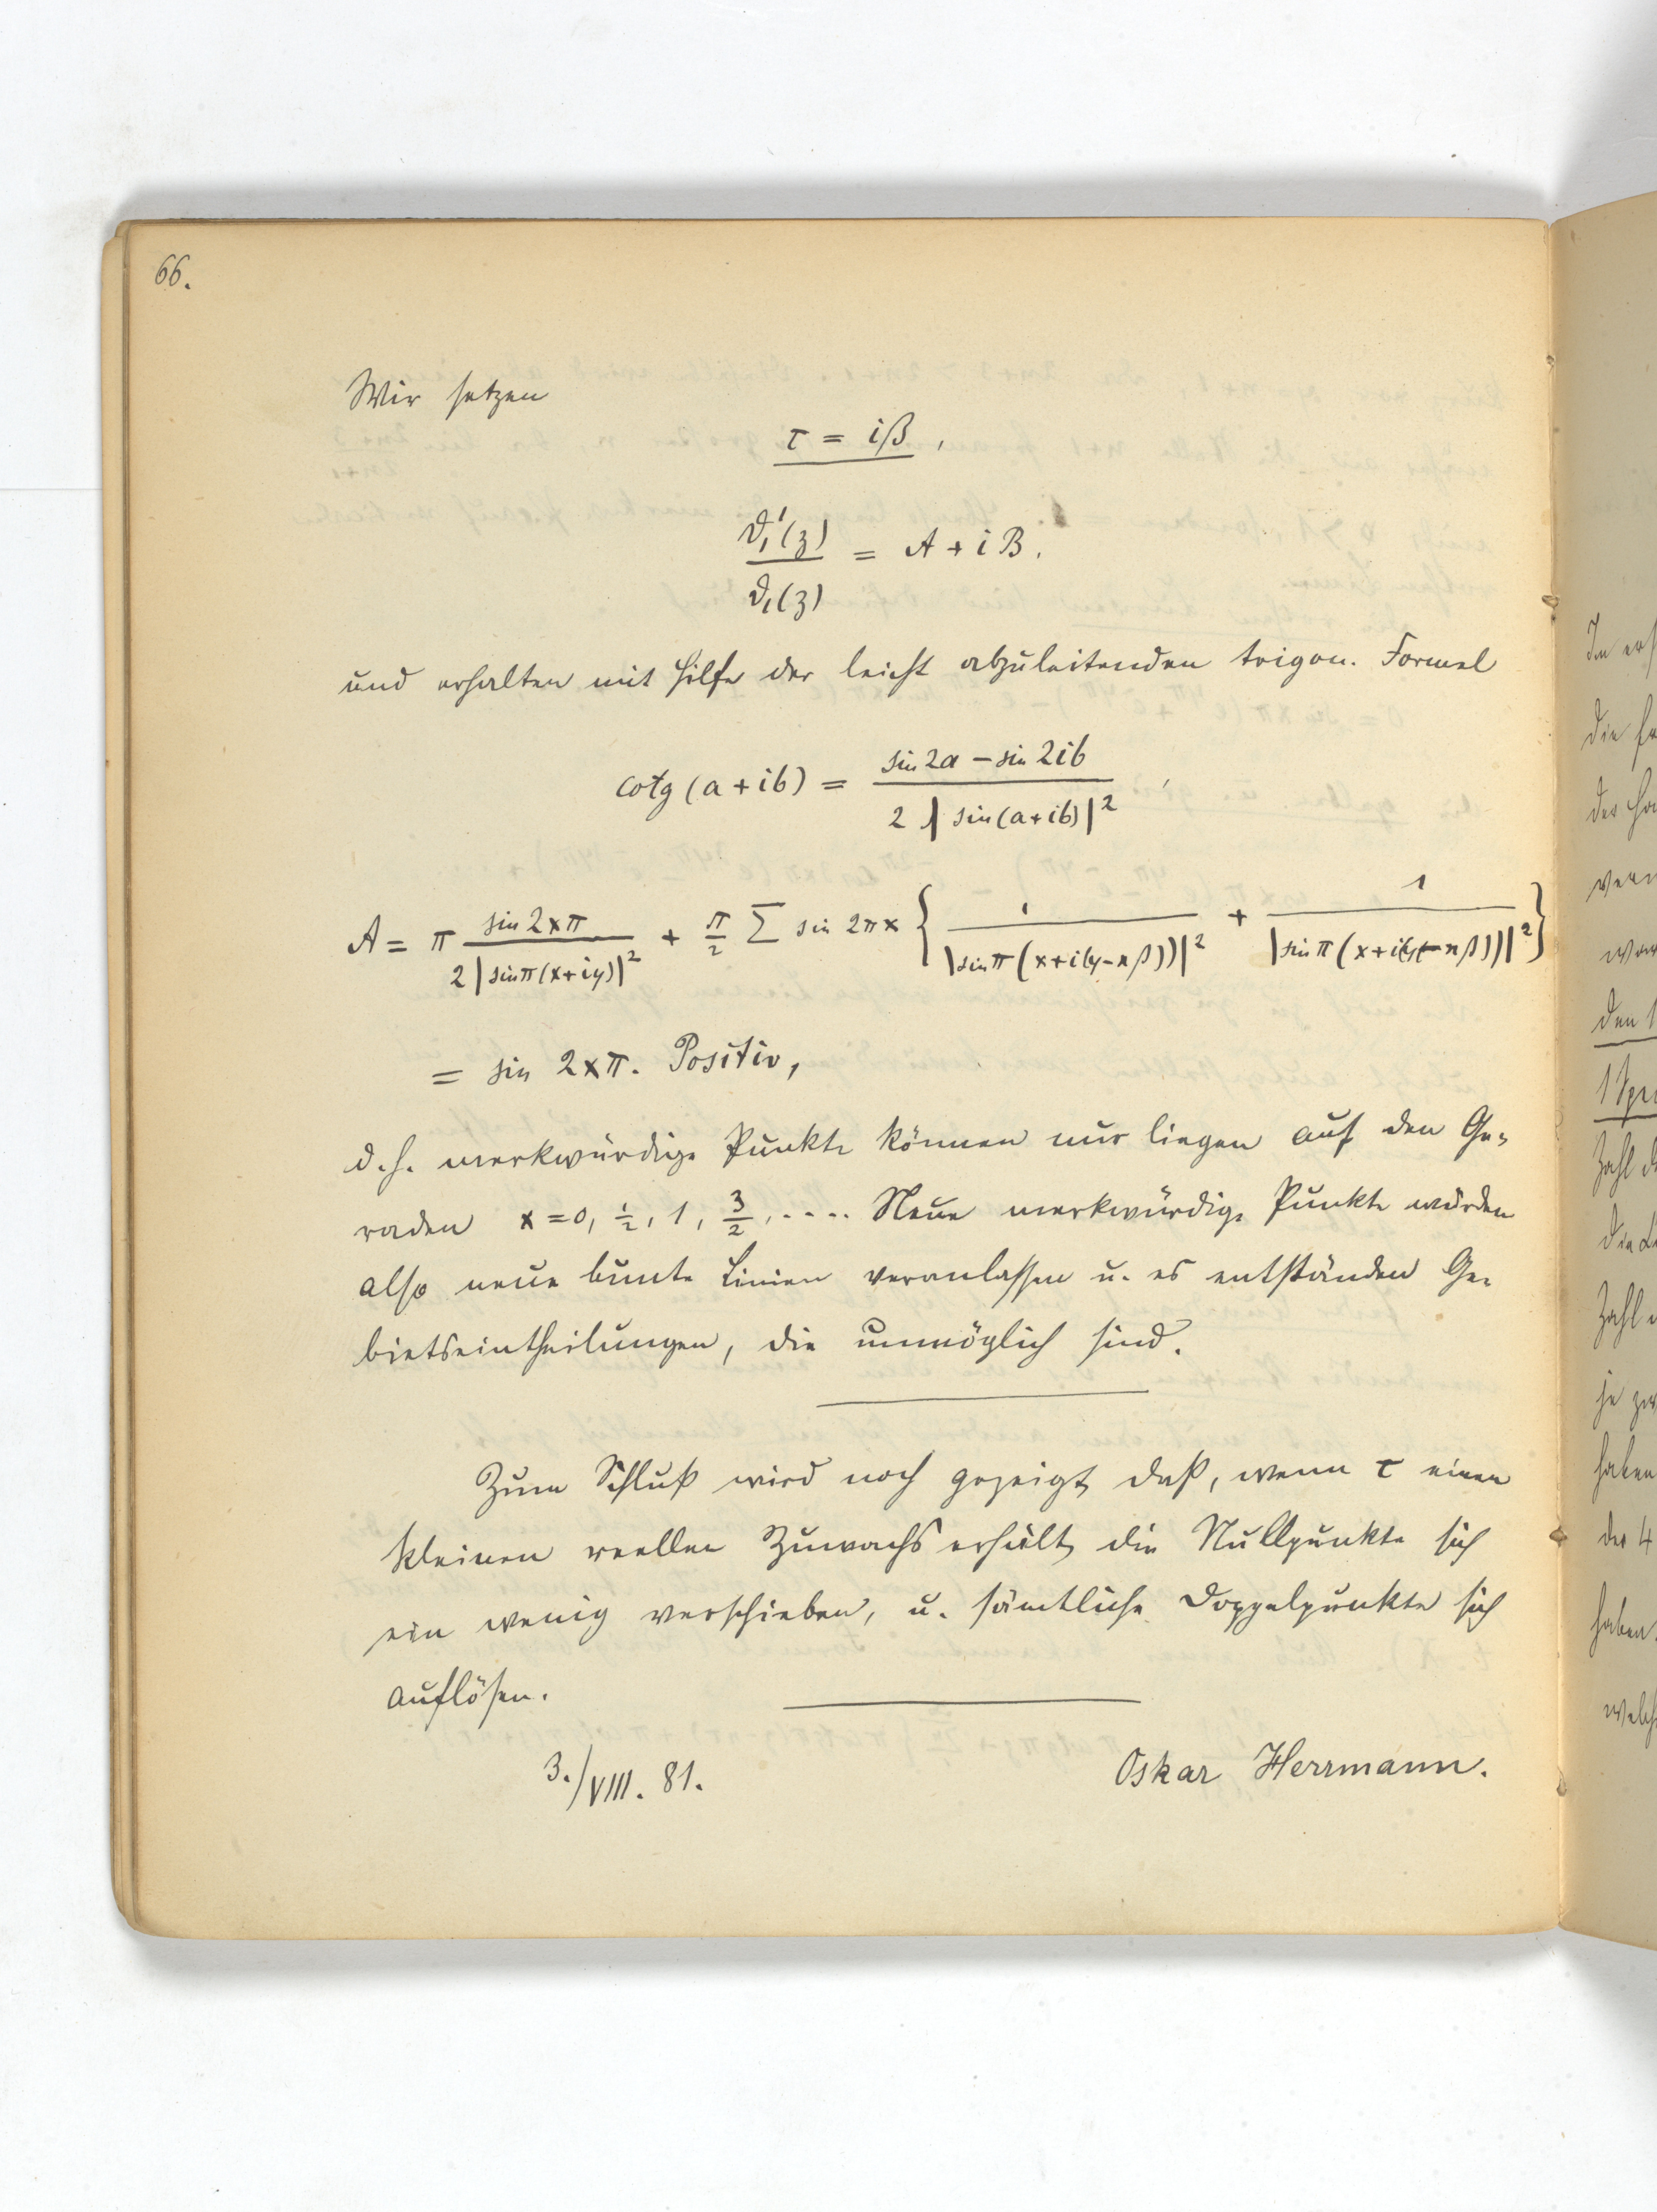 66.
Wir setzen
τ = iβ,
ϑ₁'(z) / ϑ₁(z) = A + iB.
und erhalten mit Hilfe der leicht abzuleitenden trigon. Formel
cotg (a + ib) = (sin 2a − sin 2ib) / (2 |sin(a+ib)|²),
A = π sin 2xπ / (2 |sin π(x+iy)|²) + π/2 Σ sin 2πx { 1 / |sin π(x+i(y−nβ))|² + 1 / |sin π(x+i(y+nβ))|² }
= sin 2xπ. Positiv,
d. h. merkwürdige Punkte können nur liegen auf den Ge-
raden x = 0, ½, 1, 3/2, .... Neue merkwürdige Punkte würden
also neue bunte Linien veranlassen u. es entständen Ge-
bietseintheilungen, die unmöglich sind.
Zum Schluß wird noch gezeigt, daß, wenn τ einen
kleinen reellen Zuwachs erhält, die Nullpunkte sich
ein wenig verschieben, u. sämtliche Doppelpunkte sich
auflösen.
3./VIII. 81.
Oskar Herrmann.